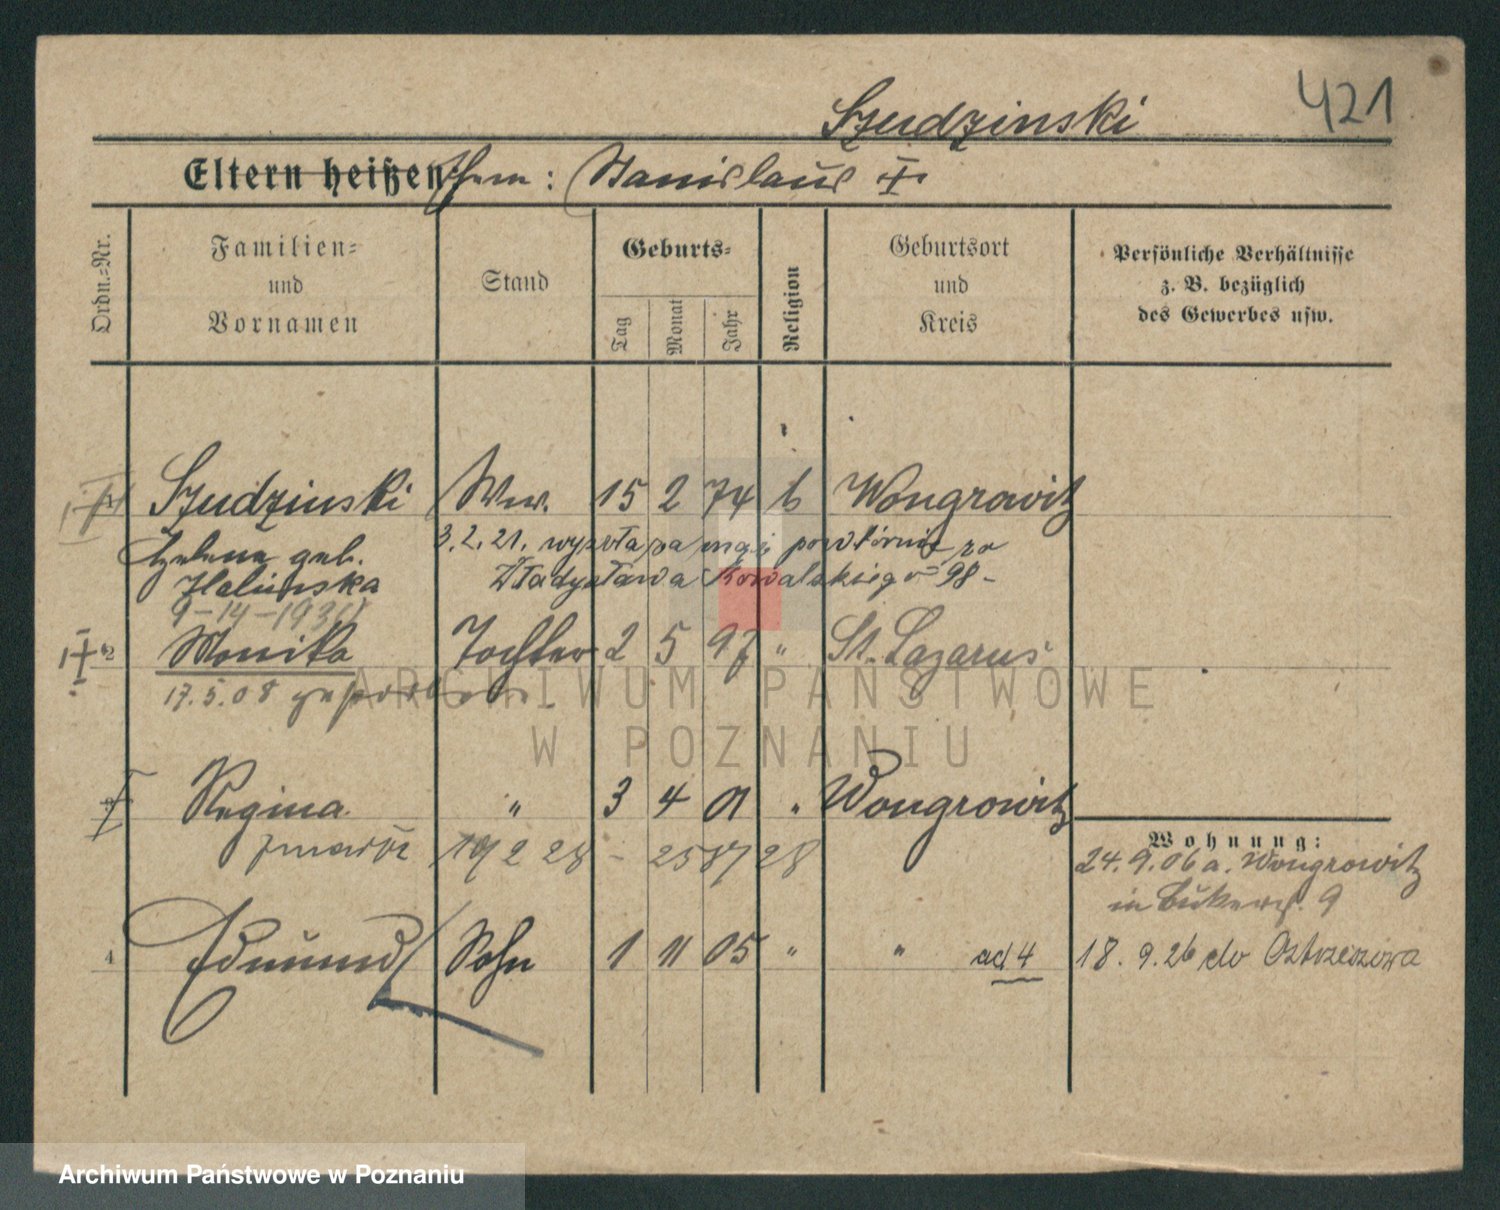 421
Szudzinski
Eltern heißen
: Stanislaus I
Ordn.-Nr.
Familien-
und
Vornamen
Stand
Geburts-
Tag
Monat
Jahr
Religion
Geburtsort
und
Kreis
Persönliche Verhältnisse
z. B. bezüglich
des Gewerbes usw.
Szudzinski Ww. 15 2 74 k Wongrowitz
Helene geb. 3.2.21. wyszła za mąż powtórnie za
Halinska Władysława Kowalskiego 98-
9-14-1930
2 Monika Tochter 2 5 97 " St. Lazarus
17.5.08 gestorben
ARCHIWUM PAŃSTWOWE
W POZNANIU
Regina " 3 4 01 " Wongrowitz
19 2 28 - 2587 28
Wohnung:
24.9.06 a. Wongrowitz
in Bukerst. 9
4 Edmund Sohn 1 11 05 " " ad 4 18.9.26 do Ostrzeszowa
Archiwum Państwowe w Poznaniu